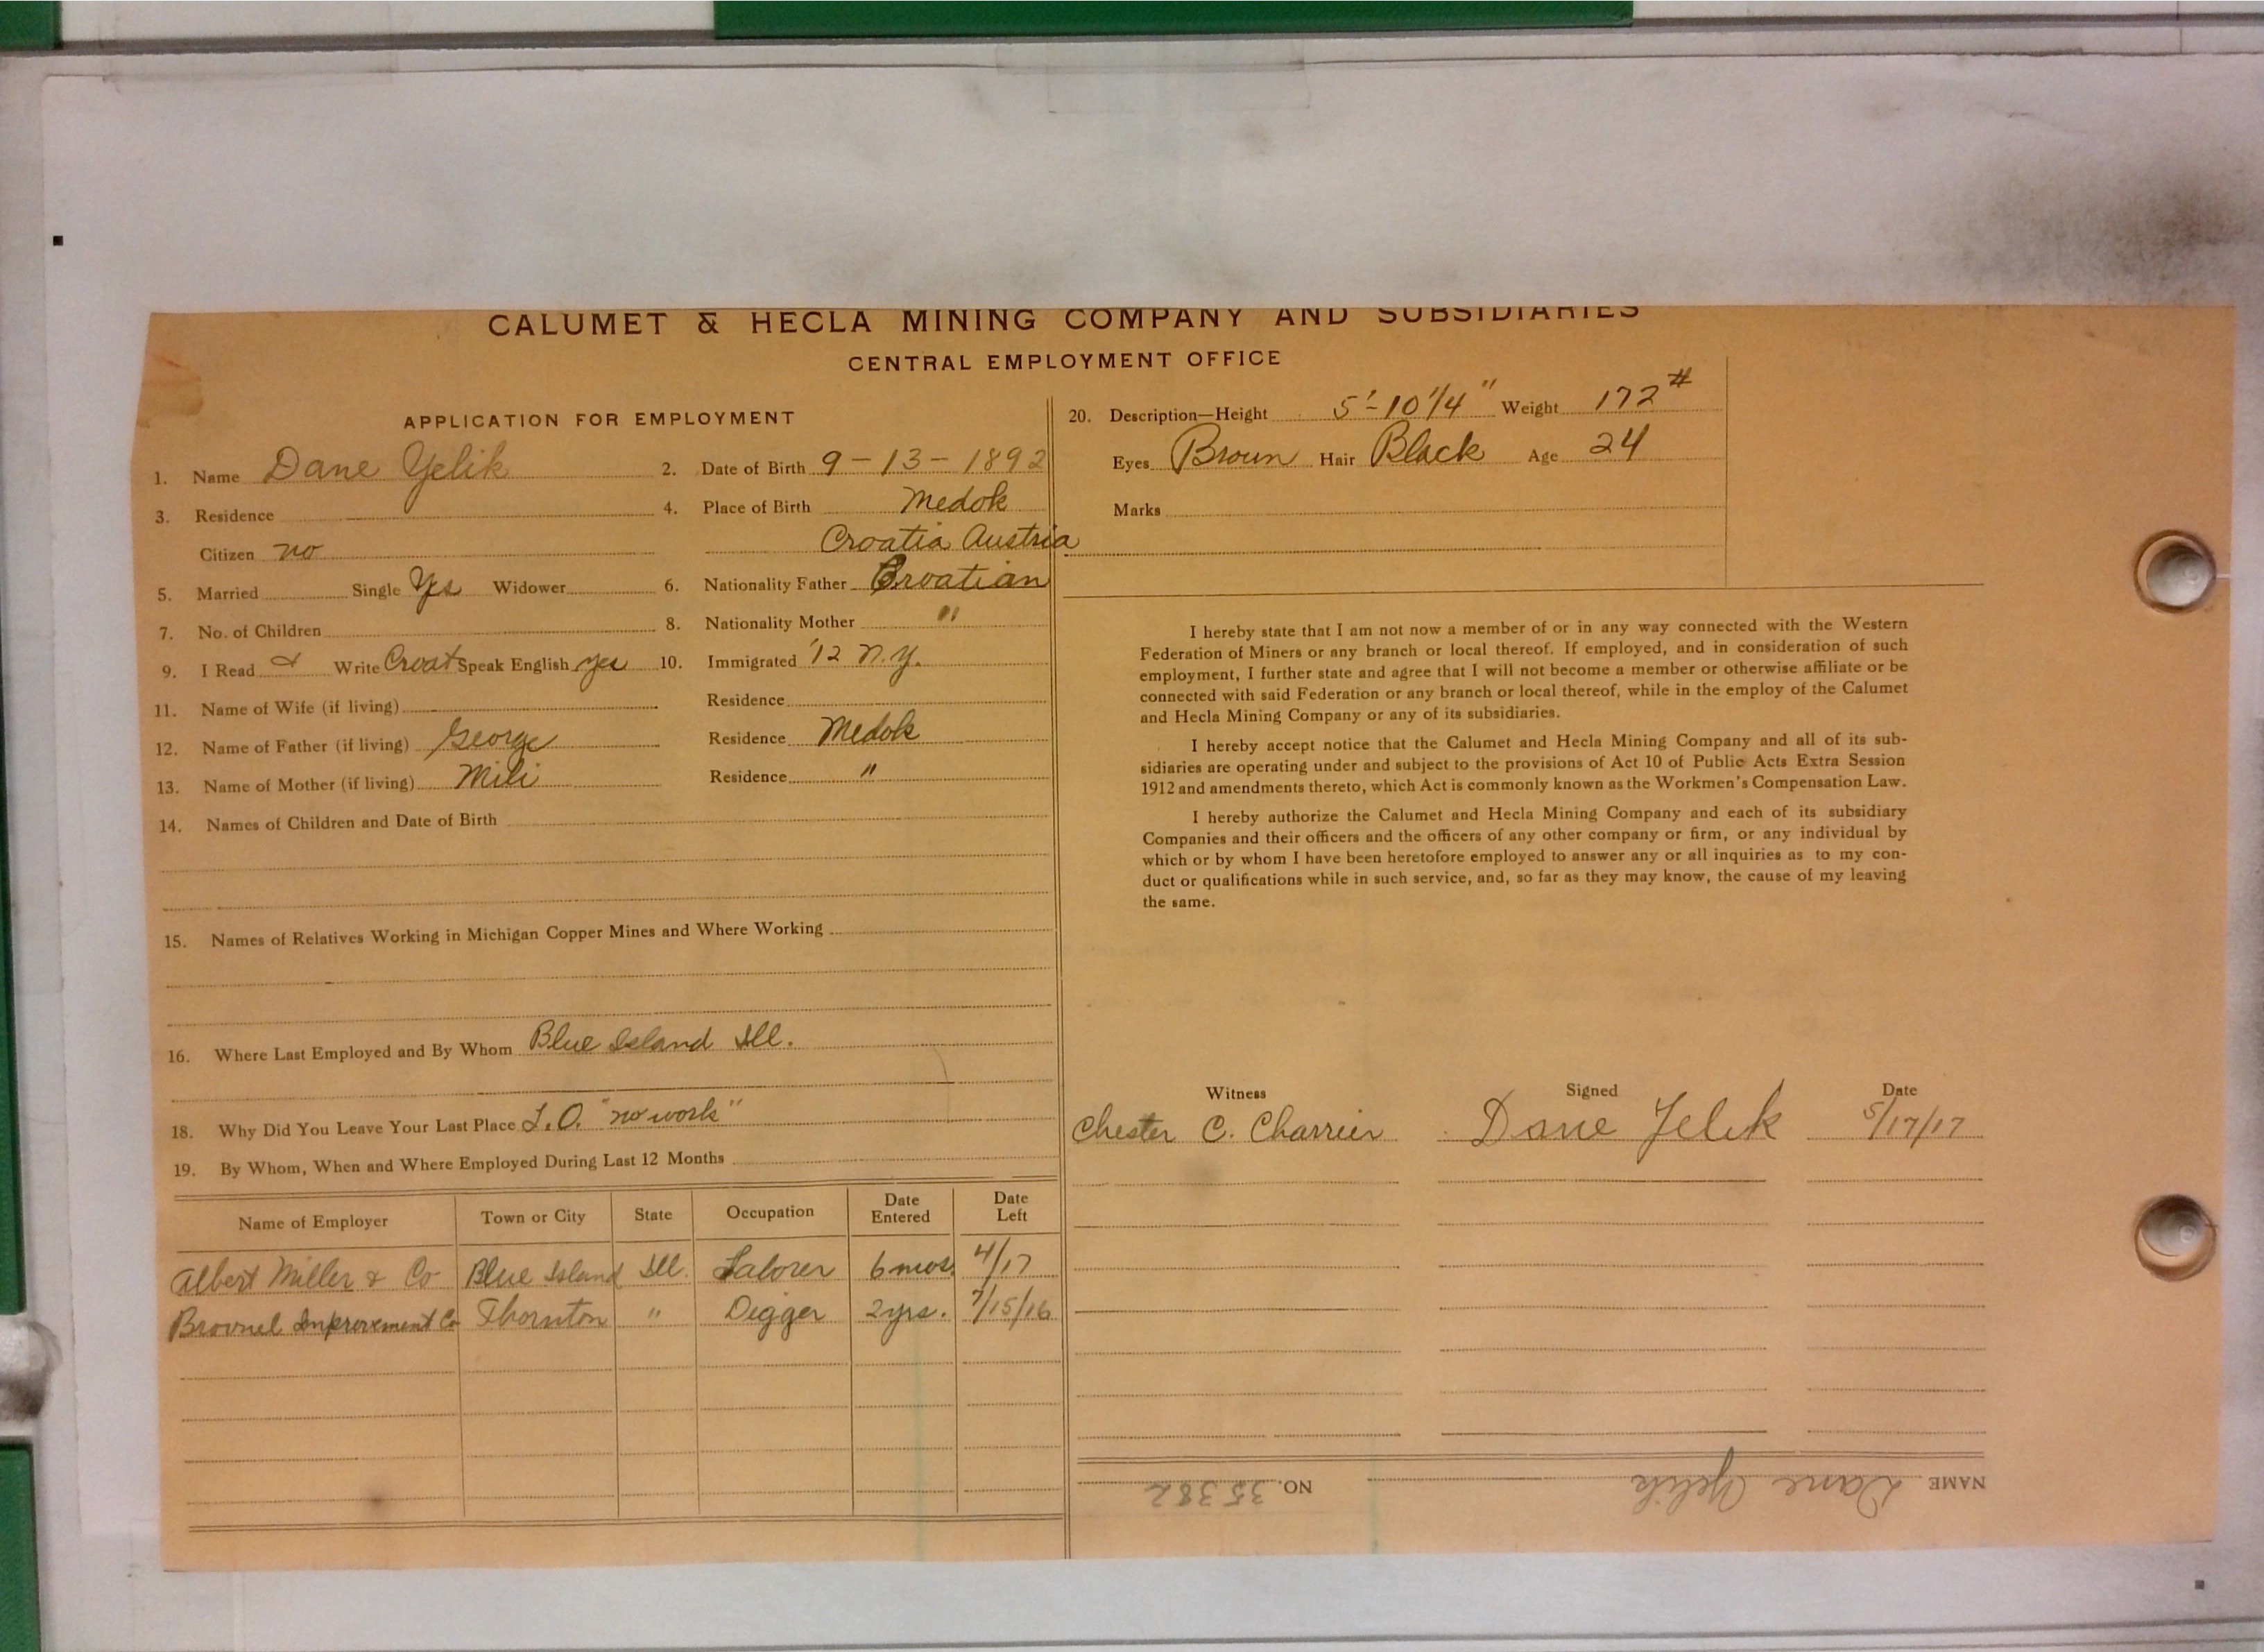 CALUMET & HECLA MINING COMPANY AND SUBSIDIARIES
CENTRAL EMPLOYMENT OFFICE
APPLICATION FOR EMPLOYMENT
1. Name Dane Yelik 2. Date of Birth 9-13-1892
3. Residence 4. Place of Birth Medok
Citizen no Croatia Austria
5. Married Single Yes Widower 6. Nationality Father Croatian
7. No. of Children 8. Nationality Mother "
9. I Read & Write Croat Speak English yes 10. Immigrated '12 N.Y.
11. Name of Wife (if living) Residence
12. Name of Father (if living) George Residence Medok
13. Name of Mother (if living) Mili Residence "
14. Names of Children and Date of Birth
15. Names of Relatives Working in Michigan Copper Mines and Where Working
16. Where Last Employed and By Whom Blue Island Ill.
18. Why Did You Leave Your Last Place L.O. "no work"
19. By Whom, When and Where Employed During Last 12 Months
Name of Employer Town or City State Occupation Date Entered Date Left
Albert Miller & Co Blue Island Ill. Laborer 6 mos. 4/17
Brownel Improvement Co Thornton " Digger 2 yrs. 7/15/16
20. Description—Height 5'-10 1/4" Weight 172#
Eyes Brown Hair Black Age 24
Marks
I hereby state that I am not now a member of or in any way connected with the Western
Federation of Miners or any branch or local thereof. If employed, and in consideration of such
employment, I further state and agree that I will not become a member or otherwise affiliate or be
connected with said Federation or any branch or local thereof, while in the employ of the Calumet
and Hecla Mining Company or any of its subsidiaries.
I hereby accept notice that the Calumet and Hecla Mining Company and all of its sub-
sidiaries are operating under and subject to the provisions of Act 10 of Public Acts Extra Session
1912 and amendments thereto, which Act is commonly known as the Workmen's Compensation Law.
I hereby authorize the Calumet and Hecla Mining Company and each of its subsidiary
Companies and their officers and the officers of any other company or firm, or any individual by
which or by whom I have been heretofore employed to answer any or all inquiries as to my con-
duct or qualifications while in such service, and, so far as they may know, the cause of my leaving
the same.
Witness Signed Date
Chester C. Charrier Dane Jelik 5/17/17
NAME Dane Yelik NO. 35382